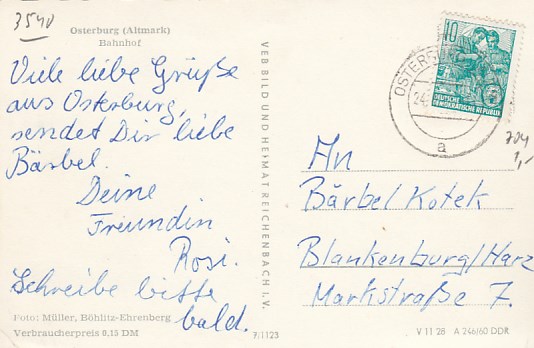 3540
Osterburg (Altmark)
Bahnhof
Viele liebe Grüße
aus Osterburg,
sendet Dir liebe
Bärbel.
Deine
Freundin
Rosi.
Schreibe bitte
bald.
Foto: Müller, Böhlitz-Ehrenberg
Verbraucherpreis 0,15 DM
VEB BILD UND HEIMAT REICHENBACH I. V.
7/1123
10
DEUTSCHE
DEMOKRATISCHE REPUBLIK
24.
a
704
1,-
An
Bärbel Kotek
Blankenburg/Harz
Markstraße 7.
V 11 28 A 246/60 DDR